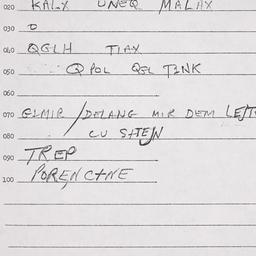 020 KALX UNEQ MALAX
030 O
040 QGLH TIAX
050 QPOL QGL TINK
060
070 GLMIR / DELANG MIR DEM LEFT
080 CU STEJN
090 TREP
100 PORENCTNE